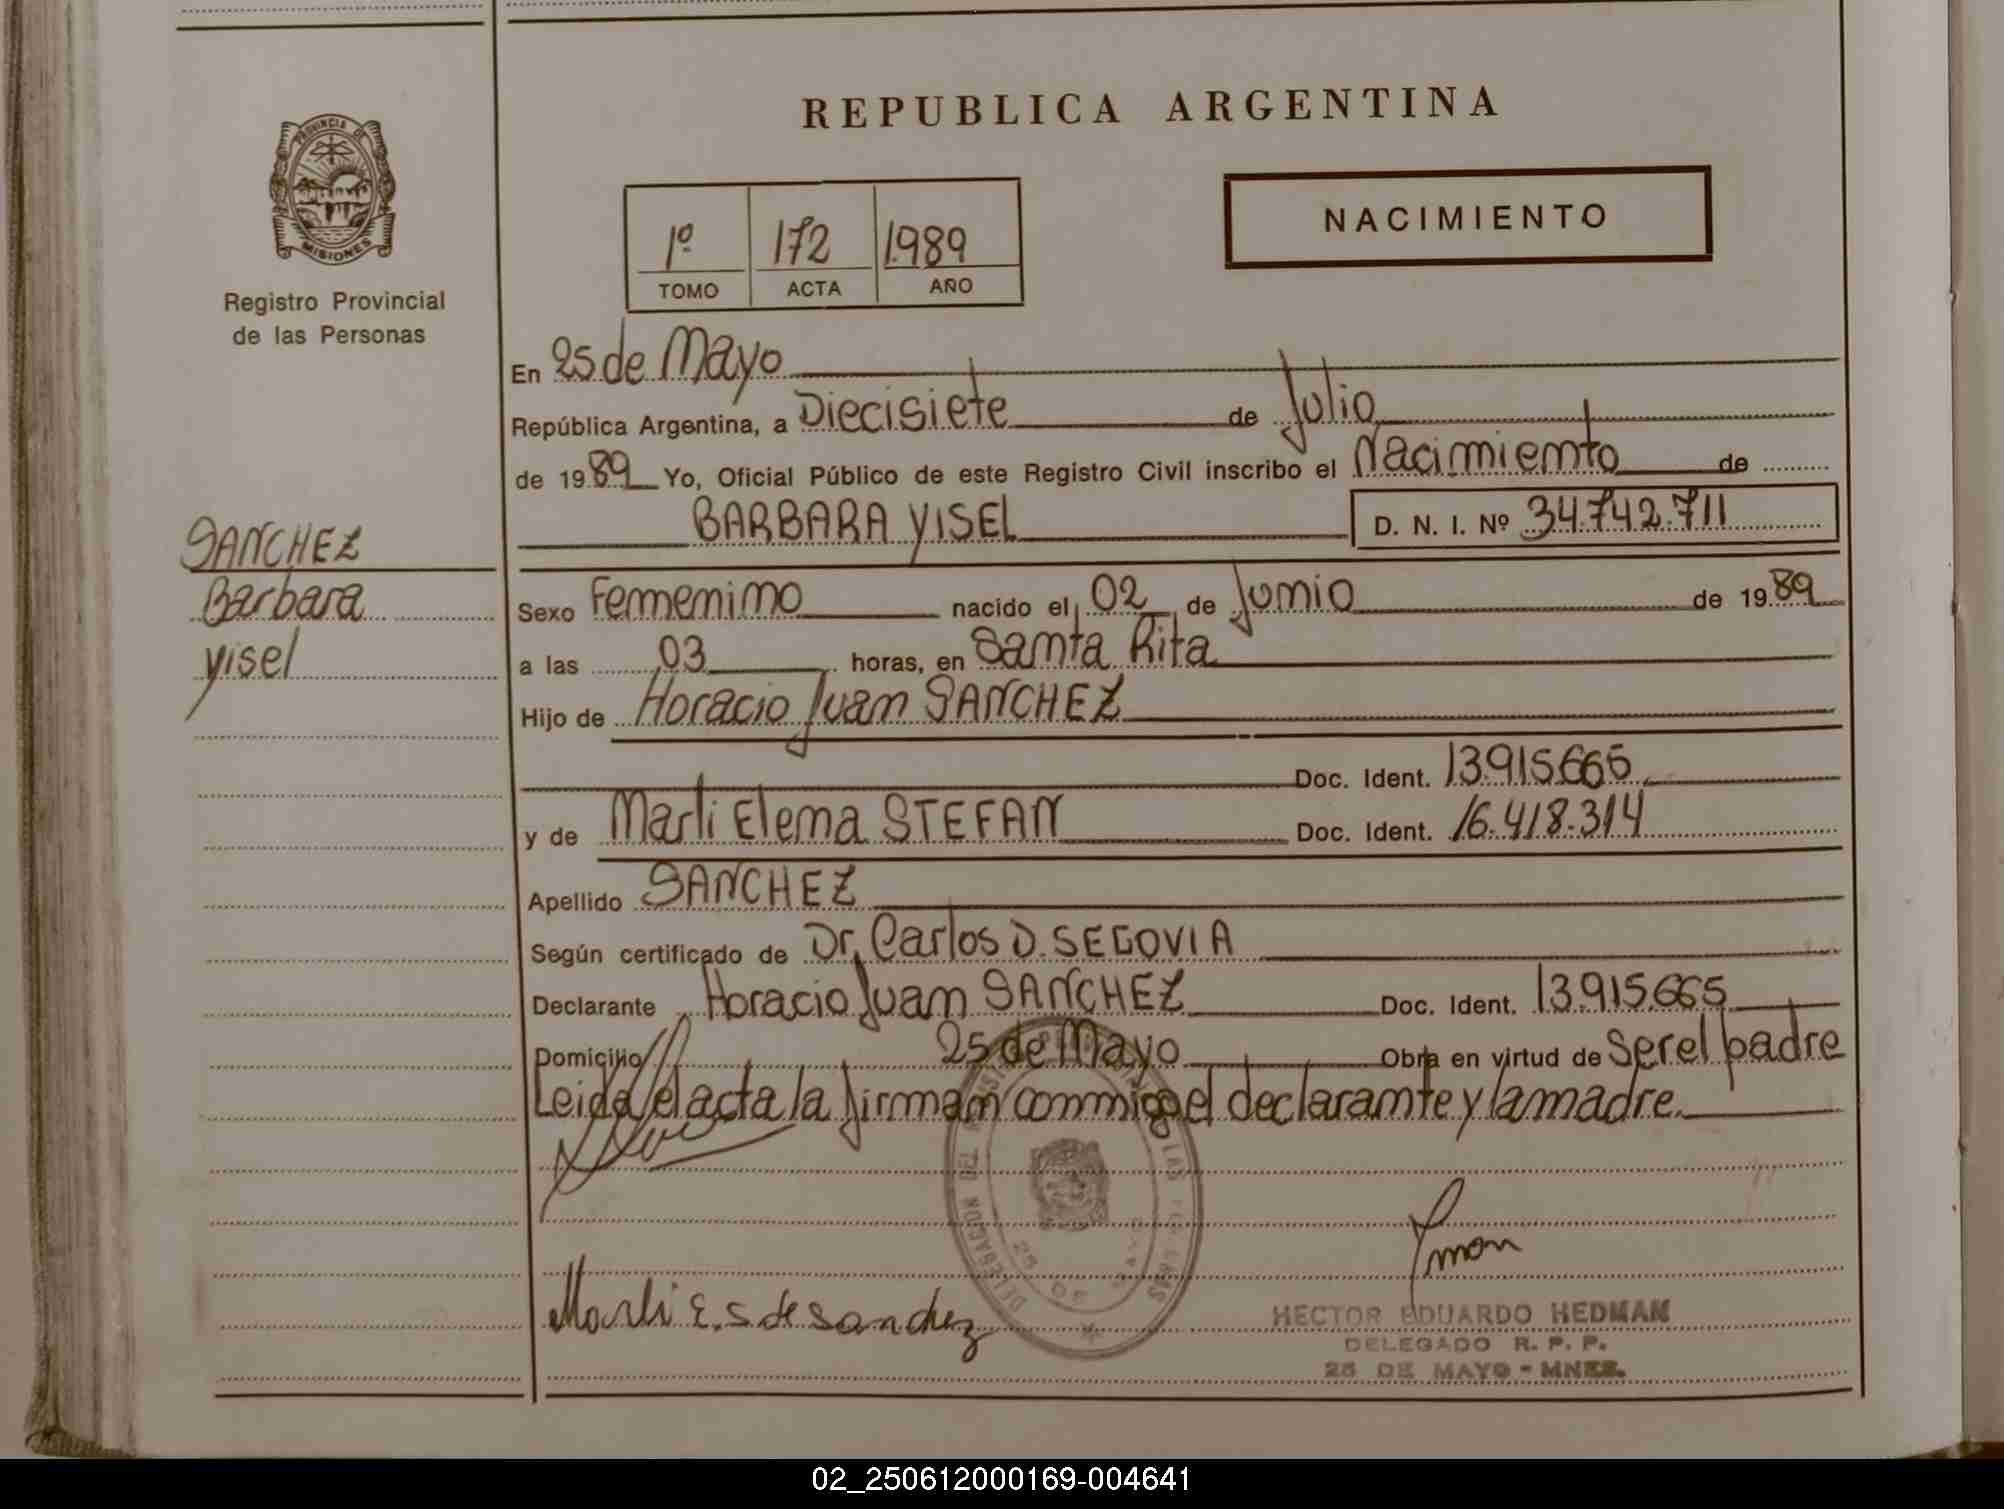 REPUBLICA ARGENTINA
PROVINCIA DE
MISIONES
Registro Provincial
de las Personas
1º 172 1989
TOMO ACTA AÑO
NACIMIENTO
En 25 de Mayo
República Argentina, a Diecisiete de Julio
de 1989 Yo, Oficial Público de este Registro Civil inscribo el Nacimiento de
BARBARA YISEL D. N. I. Nº 34.742.711
SANCHEZ
Barbara
Yisel
Sexo Femenino nacido el 02 de Junio de 1989
a las 03 horas, en Santa Rita
Hijo de Horacio Juan SANCHEZ
Doc. Ident. 13.915.665
y de Marli Elena STEFAN Doc. Ident. 16.418.314
Apellido SANCHEZ
Según certificado de Dr. Carlos D. SEGOVIA
Declarante Horacio Juan SANCHEZ Doc. Ident. 13.915.665
Domicilio 25 de Mayo Obra en virtud de Ser el padre
Leida el acta la firman conmigo el declarante y la madre.
DELEGACION DEL LAS
25 DE MAYO
Marli E. S. de Sanchez
HECTOR EDUARDO HEDMAN
DELEGADO R. P. P.
25 DE MAYO - MNES.
02_250612000169-004641